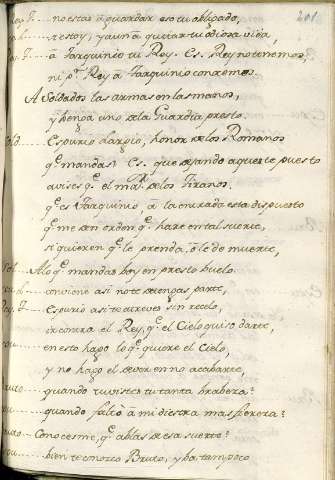 201
no estas a guardar eso tu obligado,
estoy, y aun a quitar tu odiosa vida
a Tarquinio tu Rey. Es. Rey no tenemos,
ni pr. Rey a Tarquinio conocemos.
A Soldados las armas en las manos,
y venga uno de la Guardia presto.
Sold ..... Espurio Largio, honor de los Romanos
q.e mandas? Es. que dejando aqueste puesto
avises q.e el mal de los Tiranos
q.e es Tarquinio a la entrada esta dispuesto
q.e me den orden q.e hare en tal suerte,
si quieren q.e le prenda, o le de muerte,
Sol ..... Alo q.e mandas voy en presto buelo
conviene asi no te detengas parte,
Espurio asi te atreves sin recelo,
contra el Rey, q.e el Cielo quiso darte,
en esto hago lo q.e quiere el Cielo,
y no hago el deber en no acabarte,
quando tuviste tu tanta braveza?
quando faltó a mi diestra mas fiereza?
Conocesme, q.e ablas de esa suerte?
bien te conozco Bruto, y da tampoco